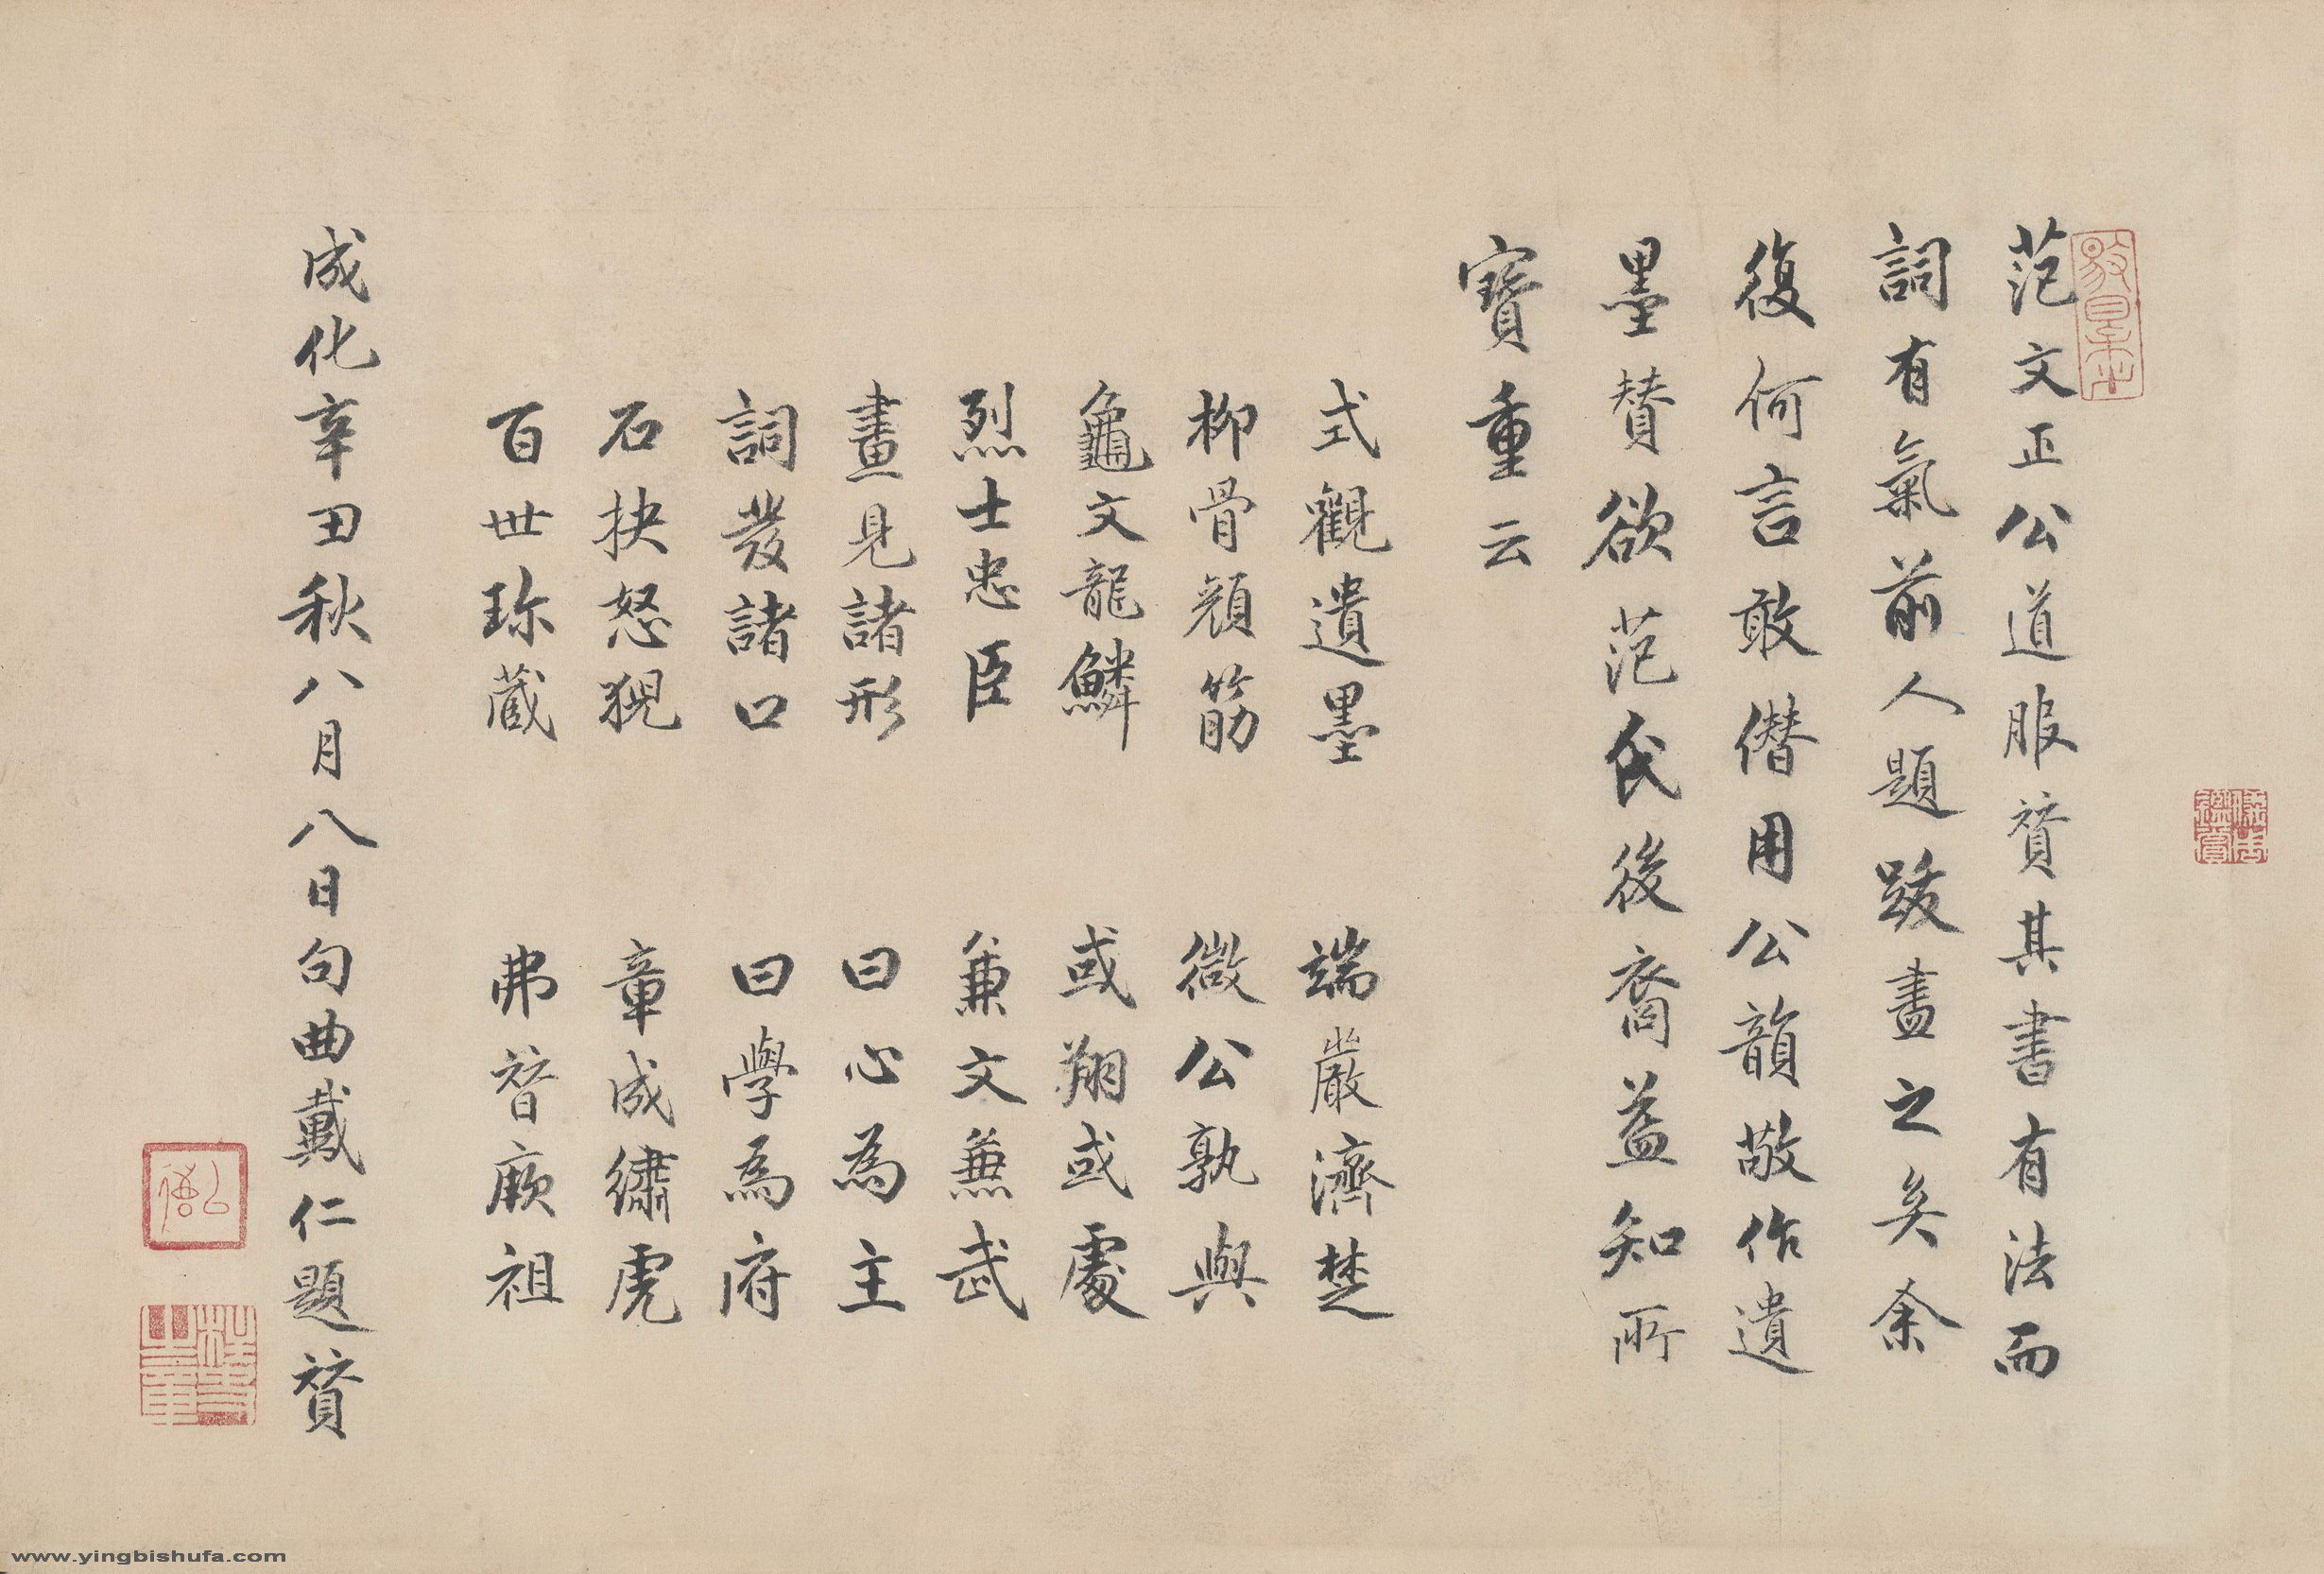 范文正公道服賛其書有法而
詞有氣前人題跋盡之矣余
復何言敢僭用公韻敬作遺
墨賛欲范氏後裔益知所
寶重云
式觀遺墨 端嚴濟楚
柳骨顏筋 微公孰與
龜文龍鱗 或翔或處
烈士忠臣 兼文兼武
畫見諸形 曰心為主
詞發諸口 曰學為府
石抉怒猊 章成繡虎
百世珎蔵 弗替厥祖
成化辛丑秋八月八日句曲戴仁題賛
www.yingbishufa.com